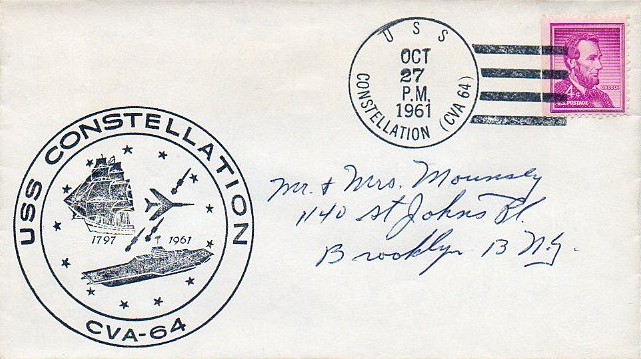 U S S
OCT
27
P.M.
1961
CONSTELLATION (CVA 64)
4¢
U.S. POSTAGE
USS CONSTELLATION
1797 1961
CVA-64
Mr. & Mrs. Mounsey
1140 St Johns Pl.
Brooklyn 13 N.Y.